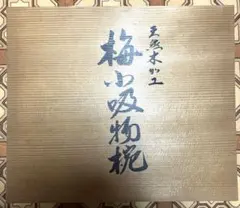 天然木加工
梅小吸物椀